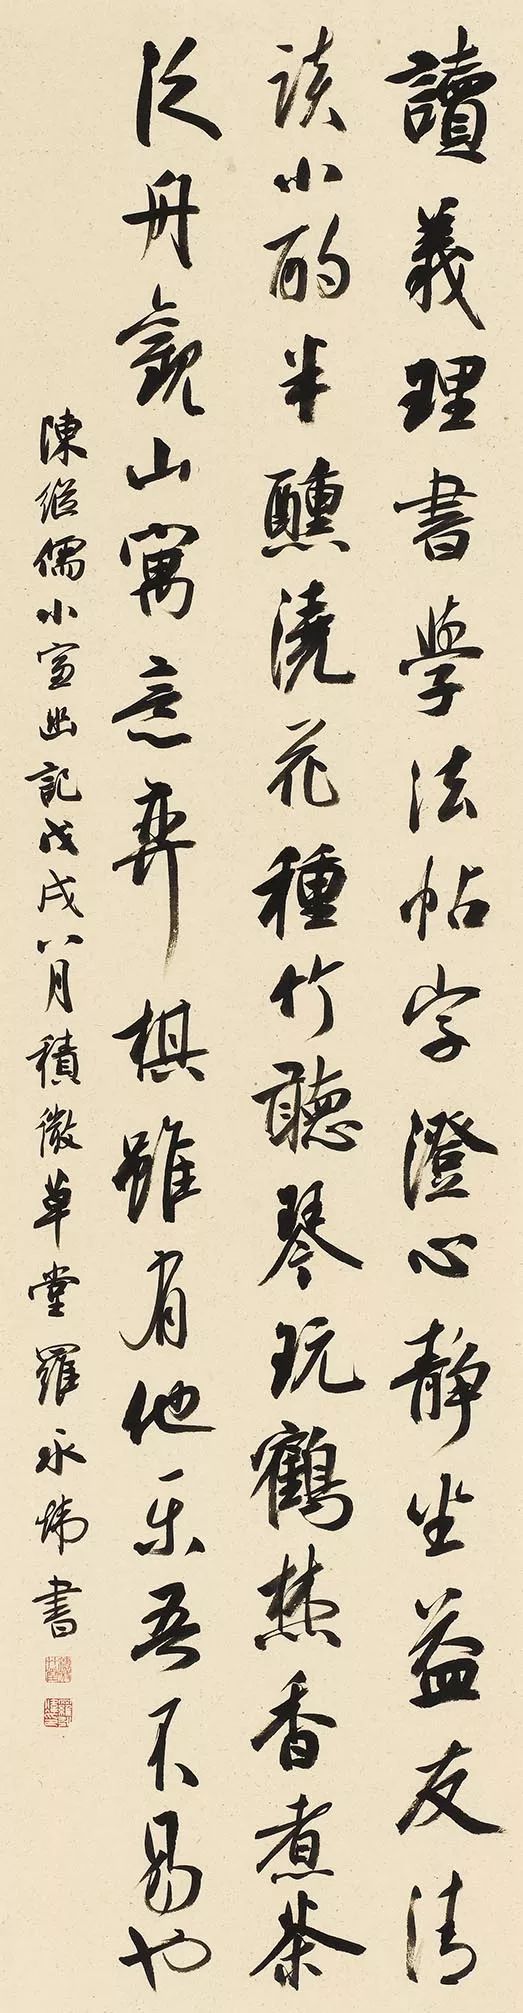 讀義理書學法帖字澄心静坐益友清
談小酌半醺澆花種竹聽琴玩鶴焚香煮茶
泛舟觀山寓意弈棋雖有他乐吾不易也
陳繼儒小窗幽記戊戌八月積微草堂羅永炜書